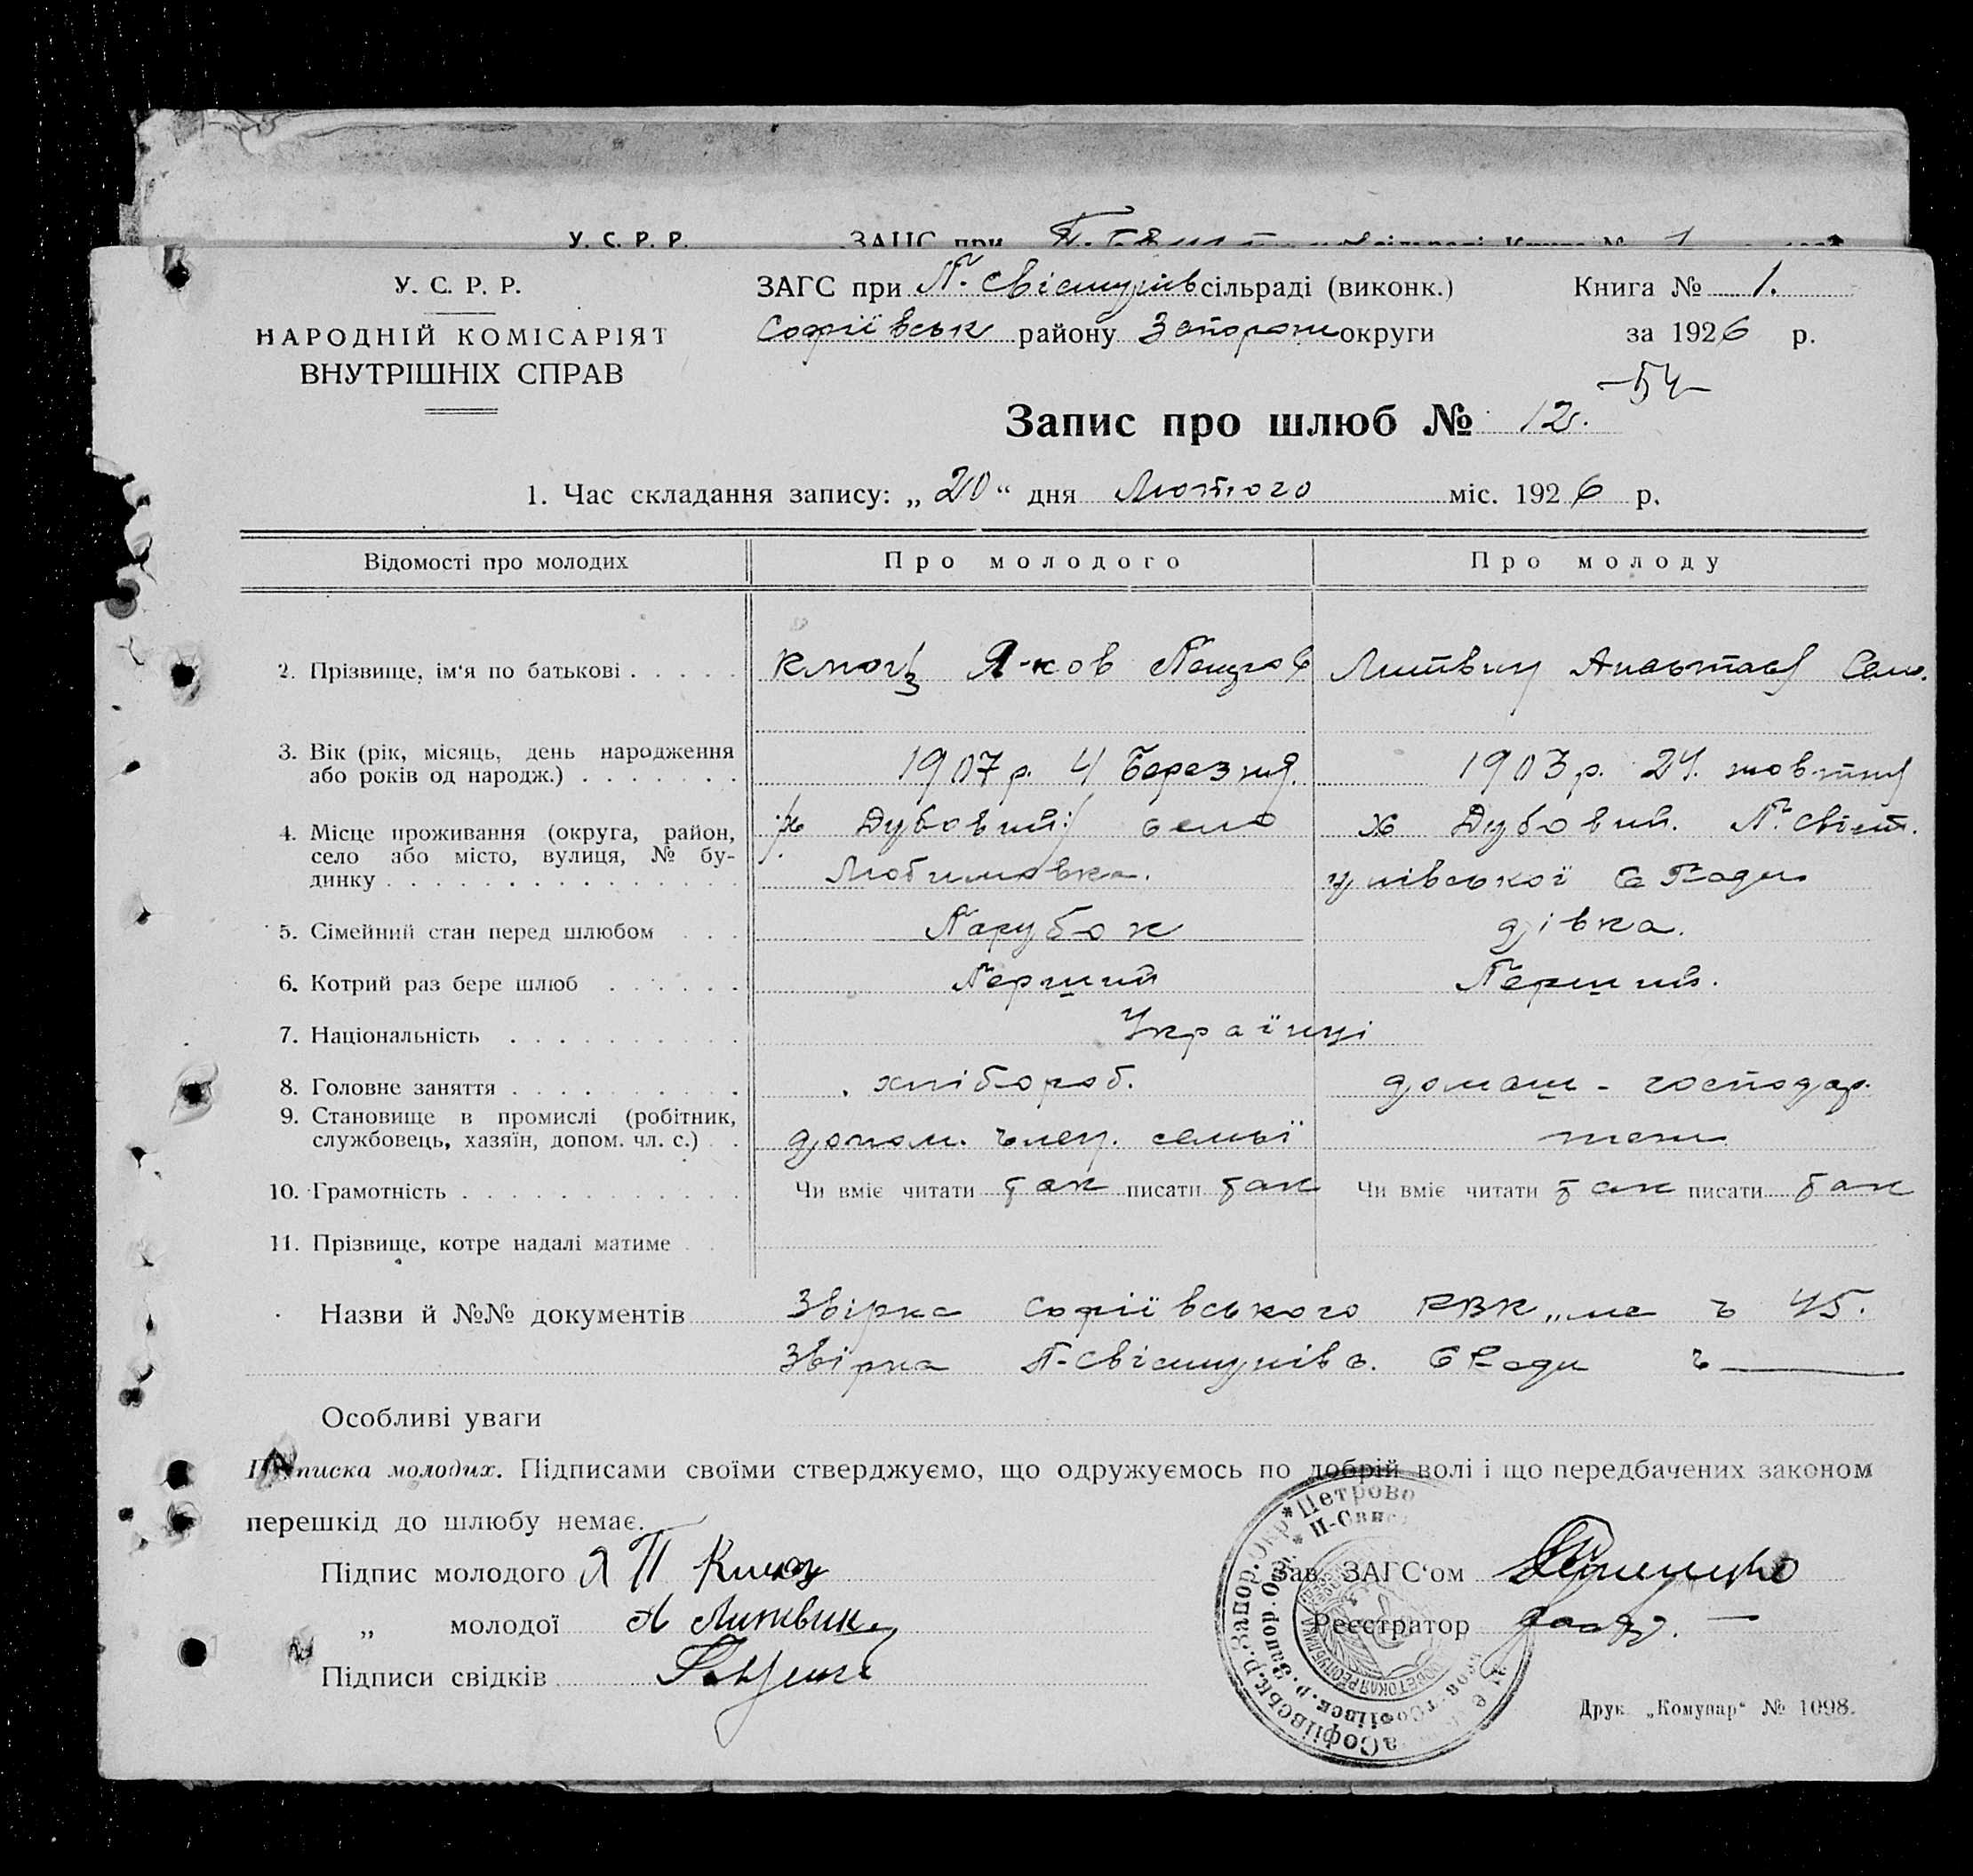 У. С. Р. Р. ЗАГС при
У. С. Р. Р.
НАРОДНІЙ КОМІСАРІЯТ
ВНУТРІШНІХ СПРАВ
ЗАГС при П. Свістунів сільраді (виконк.) Книга № 1.
Софіївськ району Запорож округи за 1926 р.
54
Запис про шлюб № 12.
1. Час складання запису: „20“ дня Лютого міс. 1926 р.
Відомості про молодих Про молодого Про молоду
2. Прізвище, ім‘я по батькові Яков Литвин
3. Вік (рік, місяць, день народження
або років од народж.) 1907 р. 4 Березня. 1903 р. 24. жовтня
4. Місце проживання (округа, район,
село або місто, вулиця, № бу-
динку
х Дубовий село
Любимовка.
х Дубовий. П. Свіст.
унівської С Ради
5. Сімейний стан перед шлюбом Парубок дівка.
6. Котрий раз бере шлюб Перший Перший.
7. Національність Українці
8. Головне заняття хлібороб. домаш - господар.
9. Становище в промислі (робітник,
службовець, хазяїн, допом. чл. с.) допом. член. семьї теж
10. Грамотність Чи вміє читати так писати так Чи вміє читати так писати так
11. Прізвище, котре надалі матиме
Назви й №№ документів Звірка Софіївського РВК 45.
Звірка П-Свістунівс. С Ради
Особливі уваги
Підписка молодих. Підписами своїми стверджуємо, що одружуємось по добрій волі і що передбачених законом
перешкід до шлюбу немає.
Підпис молодого Я П
„ молодої А Литвин
Підписи свідків
Зав. ЗАГС‘ом
Реєстратор
Друк. „Комунар“ № 1098.